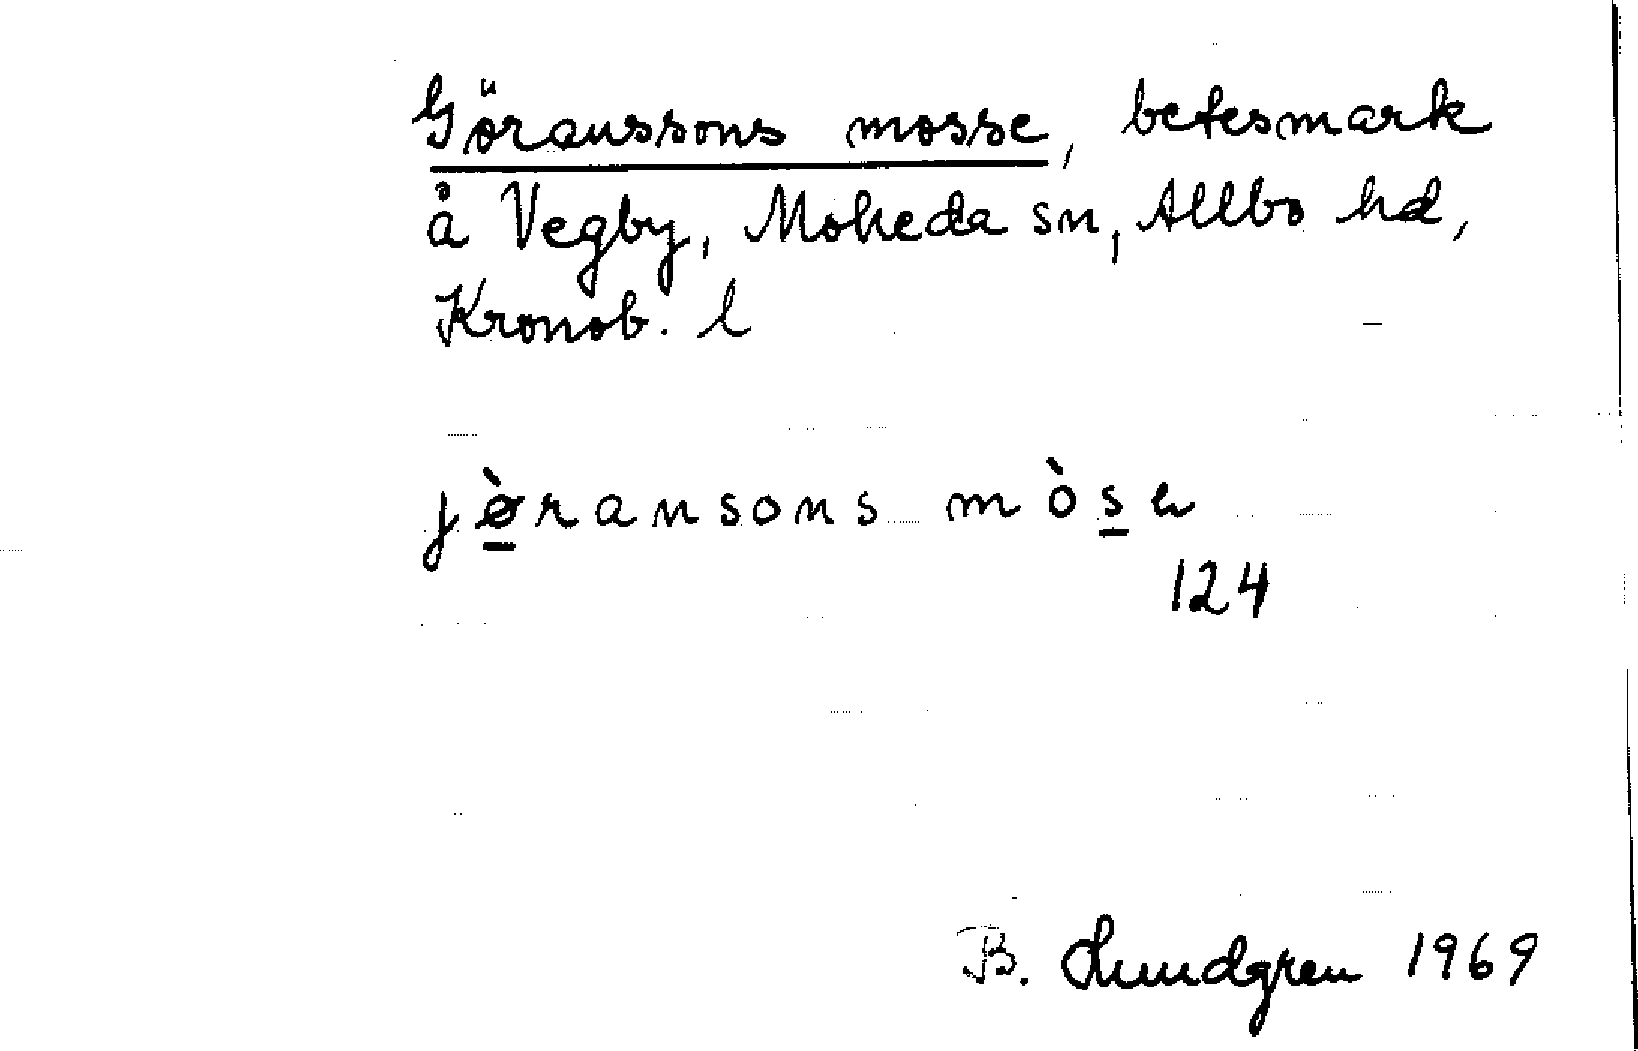 Göranssons mosse, betesmark
å Vegby, Moheda sn, Allbo hd,
Kronob. l
jø̀ransons mòse
124
B. Lundgren 1969